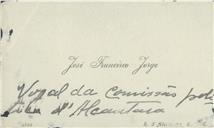 José Francisco Jorge
Vogal da comissão poli
tica d'Alcantara